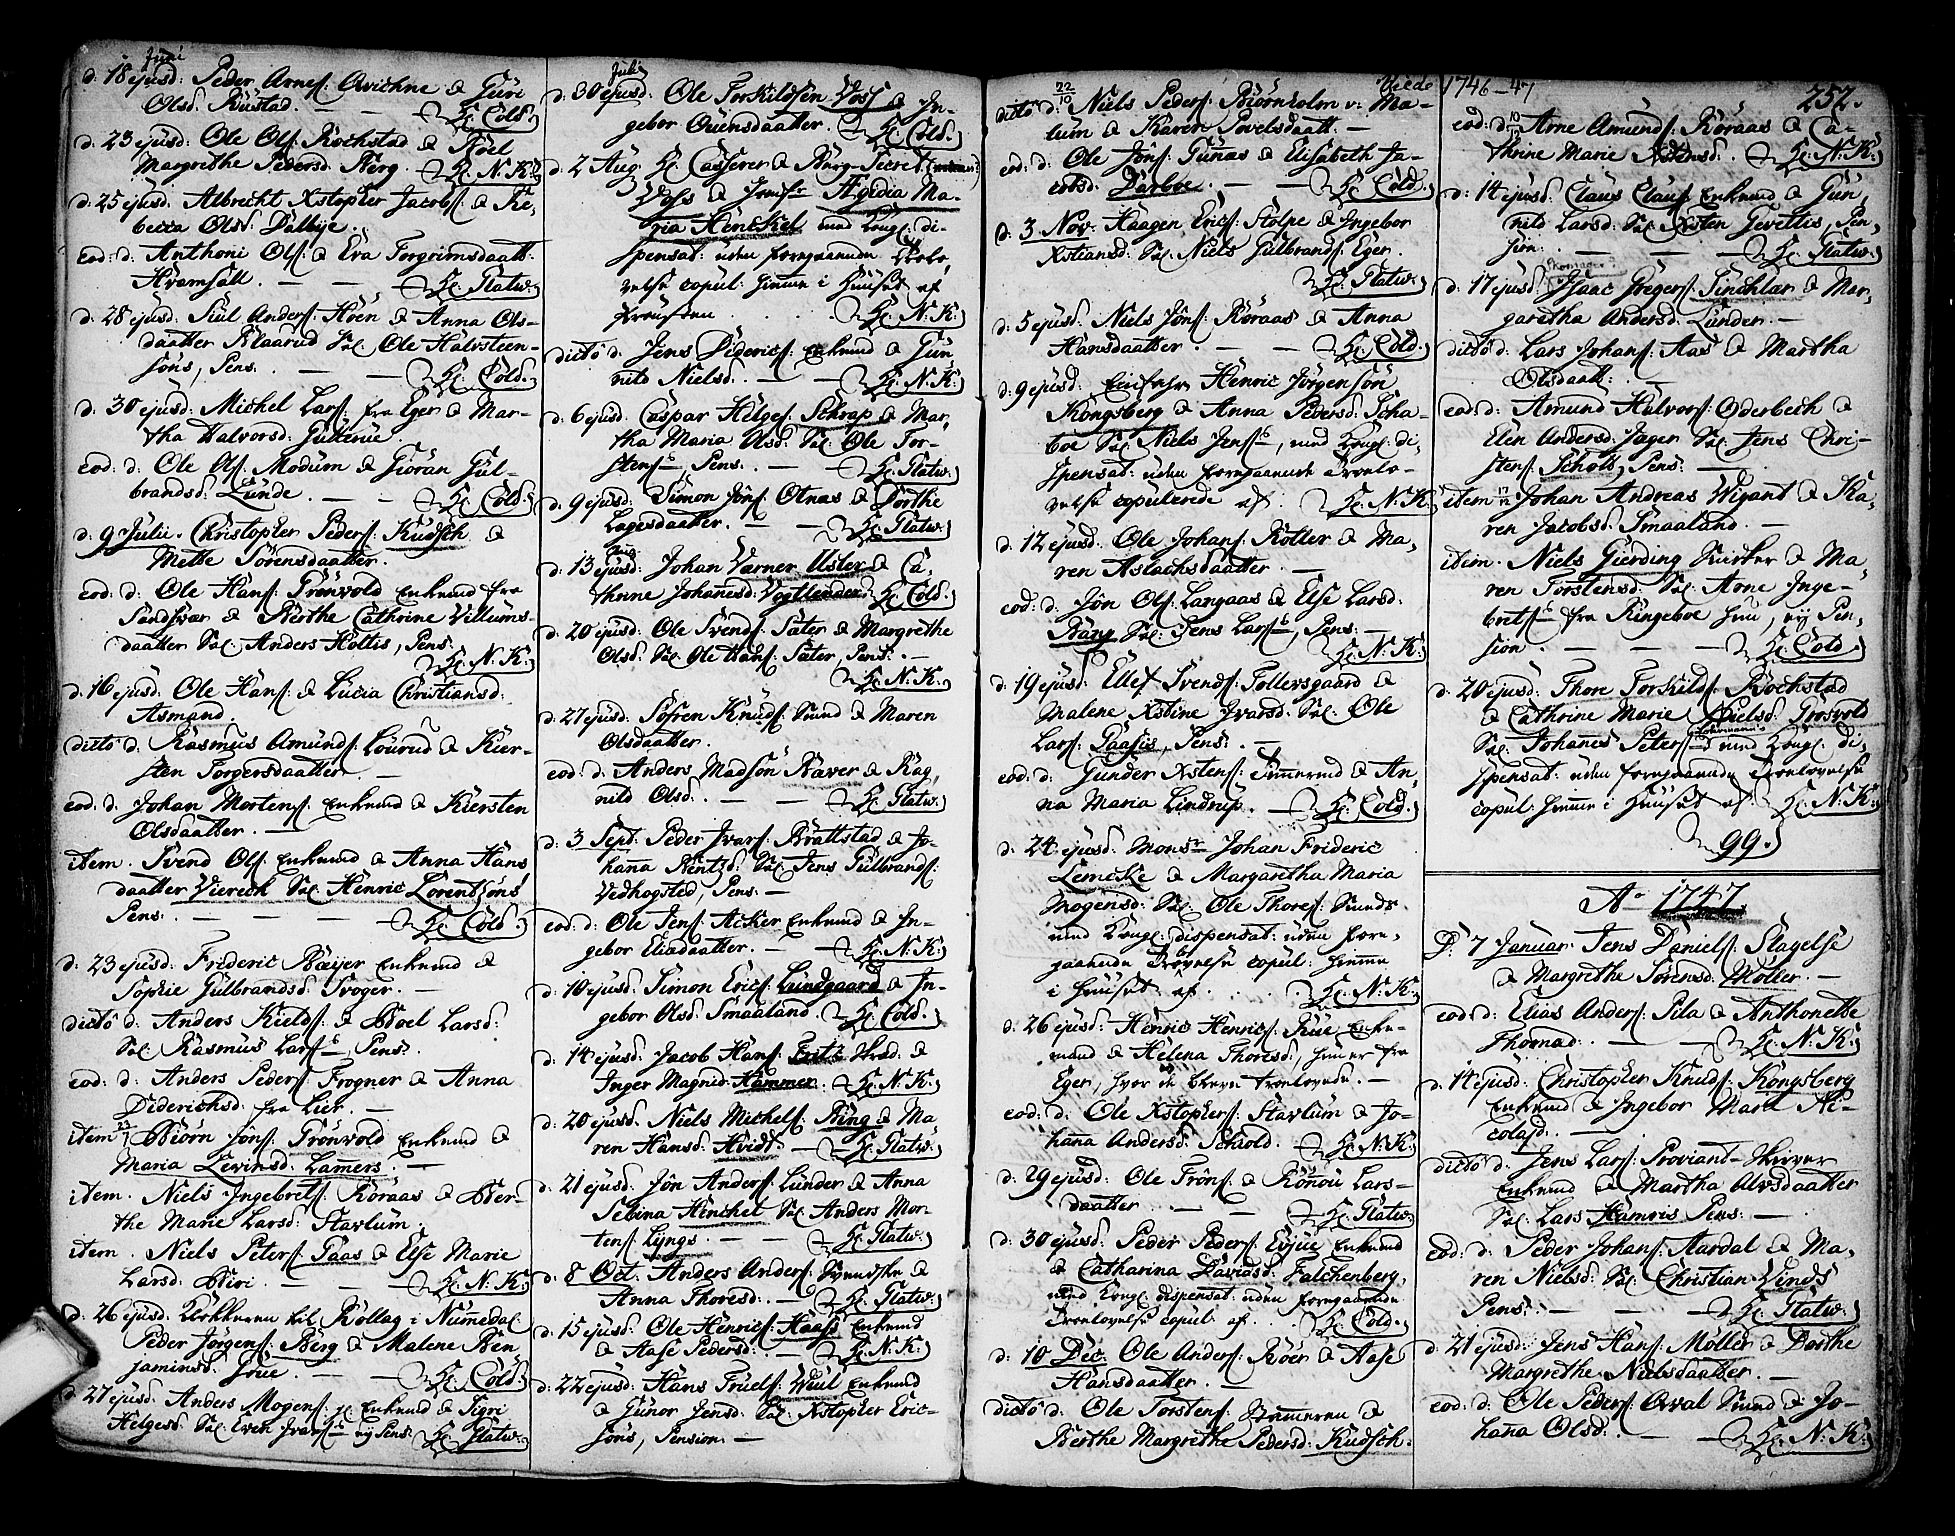 Juni
d. 18 ejusd: Peder Arnes: Qvichne & Guri
Olsd. Rustad. — Hr. Cold.
d. 23 ejusd: Ole Ols: Kochstad & Boel
Margrethe Pedersd: Berg. Hr. N. K.
d. 25 ejusd: Albrecht Xstopher Jacobs: & Re-
becca Olsd: Dalbÿe.
eod: d: Anthoni Ols: & Eva Torgrimsdaatt:
Hvamsall. — Hr. Statw:
d. 28 ejusd: Siul Anders: Höen & Anna Ols-
daatter Blaarud Sal: Ole Halvsteen-
söns, Pens. — Hr. Cold.
d: 30 ejusd: Michel Lars: fra Eger & Mar-
tha Halvorsd: Gulterue.
eod: d: Ole Ols: Modum & Giöran Gul-
brandsd: Lunde. — Hr. Cold
d. 9 Julii. Christopher Peders: Kudsch &
Mette Sörensdaatter.
eod: d: Ole Hans: Grönvold Enkemd fra
Sandsvær & Berthe Cathrine Villums-
daatter Sal: Anders Holtis, Pens.
Hr. N. K.
d. 16 ejusd: Ole Hans: & Lucia Christiansd:
Asmand.
ditto d. Rasmus Amunds: Lourud & Kier-
sten Torgersdaatter. —
eod: d. Johan Mortens: Enkemd & Kiersten
Olsdaatter. —
item. Svend Ols: Enkemd & Anna Hans
daatter Viereck Sal: Henric Lorentsöns
Pens: — Hr. Cold.
d. 23 ejusd: Frideric Bæijer Enkemd &
Sophie Gulbrandsd: Svoger. —
ditto d: Anders Kields: & Boel Larsd:
Sal: Rasmus Lars: Pens:
eod: d: Anders Peders: Frogner & Anna
Diderichsd: fra Lier. —
item Biörn Jöns: Grönvold Enkemd &
Maria Levinsd: Lamers. —
item. Niels Ingebrets: Röraas & Ber-
the Marie Larsd: Stavlum.
item. Niels Peters: Paas & Else Marie
Larsd: Biri. — Hr. N. K.
d. 26 ejusd: Klokkeren til Rollag i Numedal
Peder Jörgens: Berg & Malene Ben-
jaminsd: Frue. — Hr. Cold.
d. 27 ejusd: Anders Mogens: Enkemd & Sigri
Helgesd: Sal: Even Ivars: nÿ Pens: Hr. Statw:
Julii
d. 30 ejusd: Ole Torkildsen Voss & In-
gebor Evensdaatter. Hr. Cold.
d. 2 Aug. Hr. Casserer & Berg-Secret:
Voss & Jomfr Ægidia Ma-
ria Henckel med Kongl: di-
spensat: uden foregaaende Trolo-
velse copul: hiemme i Huuset af
Provsten . . . Hr. N. K.
ditto d. Jens Dideric: Enkemd & Gun-
nild Nielsd. — Hr. N. K.
d. 6 ejusd: Caspar Helges: Schrap & Mar-
tha Maria Olsd: Sal: Ole Tor-
stens: Pens: — Hr. Statw:
d. 9 ejusd: Simon Jöns: Otnæs & Dorthe
Lagesdaatter. — Hr. Statw:
Aug
d. 13 ejusd: Johan Varner Usler & Ca-
thrine Johannesd: Vogtlender Hr. Cold.
d. 20 ejusd: Ole Svends: Sæter & Margrethe
Olsd: Sal: Ole Hans: Sæter, Pens: —
Hr. N. K.
d. 27 ejusd: Sofren Knuds: Smed & Maren
Olsdaatter.
eod: d: Anders Madsön Baver & Rag-
nild Olsd: — Hr. Statw:
d. 3 Sept: Peder Ivars: Brattstad & Jo-
hana Nentzd: Sal: Jens Gulbrands:
Vedhogsted, Pens: —
eod: d: Ole Jens: Acker Enkemd & In-
gebor Eliadaatter. — Hr. N. K.
d. 10 ejusd: Simon Erics: Lundgaard & In-
gebor Olsd: Smaaland. Hr. Cold.
d. 14 ejusd: Jacob Hans: Brit & Hrad: &
Inger Magned: Hammer. Hr. N. K.
d. 20 ejusd: Niels Michels: Ring & Ma-
ren Hansd: Hvidt. — Hr. Statw:
d. 21 ejusd: Jön Anders: Lunder & Anna
Sebina Henckel Sal: Anders Mor-
tens: Lyngs. — Hr. Statw:
d. 8 Oct. Anders Anders: Svendske &
Anna Thoresd: — Hr. Statw:
d. 15 ejusd: Ole Henrics: Haass Enkemd
& Aase Pedersd: — Hr. N. K.
d. 22 ejusd: Hans Truels: Wiul Enkemd
& Gunor Jensd: Sal: Xstopher Eric-
söns, Pension. —
Viede 1746-47 252.
22/10
ditto d. Niels Peders: Biörnholm v: Ma-
lum & Karen Povelsdaatt. —
eod: d: Ole Jöns: Gunnæs & Elisabeth Ja-
cobsd: Darboe. — Hr. Cold.
d. 3 Nov. Haagen Erics: Stolpe & Ingebor
Xstiansd: Sal: Niels Gulbrands: Eger.
Hr. Statw:
d. 5 ejusd: Niels Jöns: Röraas & Anna
Hansdaatter. — Hr. Cold.
d. 9 ejusd: Henric Jörgensön
Kongsberg & Anna Pedersd: Scha-
boe Sal: Niels Jens:, med Kongl: di-
spensat: uden foregaaende Trolo-
velse copulerede af. Hr. N. K.
d. 12 ejusd: Ole Johans: Kolter & Ma-
ren Aslachsdaatter. —
eod: d: Jön Ols: Langaas & Else Larsd:
Bang Sal: Jens Lars:, Pens: —
Hr. N. K.
d. 19 ejusd: Ellef Svends: Tollersgaard &
Malene Xstine Ivarsd: Sal: Ole
Lars: Paasis, Pens: —
eod: d: Gunder Xstens: Tömmermd & An-
na Maria Lindrup. — Hr. Cold.
d. 24 ejusd: Monsr Johan Frideric
Lemcke & Margaretha Maria
Mogensd: Sal: Ole Thores: Smeds
med Kongl: dispensat: uden fore-
gaaende Trolovelse copul: hiemme
i Huuset af . . . Hr. N. K.
d. 26 ejusd: Henric Henrics: Rue Enke-
mand & Helena Thoresd:, hun er fra
Eger, hvor de bleve trolovede. —
eod: d: Ole Xstophers: Stavlum & Jo-
hana Andersd: Schiold. Hr. N. K.
d. 29 ejusd: Ole Fröns: & Rönou Lars-
daatter. — Hr. Statw:
d. 30 ejusd: Peder Peders: Evjue Enkemd
& Catharina Davidsd: Falchenberg,
med Kongl: dispensat: uden foregaaende
Trolovelse copul: af. . Hr. Cold.
d. 10 Dec: Ole Anders: Röer & Aase
Hansdaatter. —
ditto d: Ole Torstens: Bremeren &
Berthe Margrethe Pedersd: Kudsch.
eod: d. 10/12 Arne Amunds: Röraas & Ca-
thrine Marie . Hr. N. K.
d: 14 ejusd: Claus Claus: Enkemd & Gun-
nild Larsd: Sal: Xsten Gevellis, Pen-
sion. — Hr. Statw:
d. 17 ejusd: Isaac Gregers: Sinchlar & Mar-
garetha Andersd: Lunder. —
ditto d: Lars Johans: Aas & Martha
Olsdaatt: —
eod: d: Amund Halvors: Oderbech &
Elen Andersd: Jager Sal: Jens Chri-
stens: Schold, Pens: —
item 17/12 Johan Andreas Wigant & Ka-
ren Jacobsd: Smaaland. —
item. Niels Gierding Snitker & Ma-
ren Torstensd: Sal: Arne Inge-
brets: fra Ringeboe hun, nÿ Pen-
sion. — Hr. Cold.
d. 20 ejusd: Thore Torkilds: Kochstad
& Cathrine Marie Nielsd: Grosvold
Sal: Johannes Peters: med Kongl: di-
spensat: uden foregaaende Trolovelse
copul: hiemme i Huuset af. Hr. N. K.
99.
Ao 1747.
D. 7 Januar: Jens Daniels: Slagelse
& Margrethe Sörensd: Möller. —
eod: d: Elias Anders: Pila & Anthonette
Thomad: . . — Hr. N. K.
d. 14 ejusd: Christopher Knuds: Kongsberg
Enkemd & Ingebor Marie Ni-
colasd: —
ditto d: Jens Lars: Proviant-Skriver
Enkemd & Martha Alvsdaatter
Sal: Lars Hamris Pens: —
eod: d: Peder Johans: Aardal & Ma-
ren Nielsd: Sal: Christian Winds
Pens: — Hr. Statw:
d. 21 ejusd: Jens Hans: Möller & Dorthe
Margrethe Nielsdaatter. —
eod: d: Ole Peders: Qval Smed & Jo-
hana Olsd: — Hr. N. K.